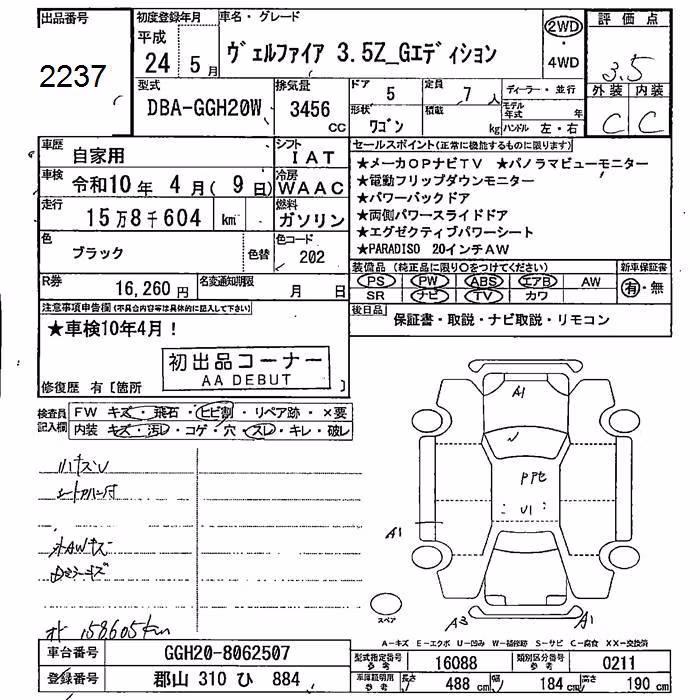 出品番号
2237
初度登録年月
平成
24 5月
車名・グレード
ヴェルファイア 3.5Z_Gエディション
2WD
・
4WD
評価点
3.5
外装 内装
C C
型式
DBA-GGH20W
排気量
3456
CC
ドア 5
形状
ワゴン
定員 7 人
積載 kg
ディーラー・並行
モデル年式 年
ハンドル 左・右
車歴
自家用
シフト
IAT
車検
令和10年 4月( 9日)
冷房
WAAC
走行
15万8千604 km
燃料
ガソリン
色
ブラック
色替
色コード
202
R券
16,260円
名変通知期限
月 日
セールスポイント(正常に機能するものに限ります)
★メーカOPナビTV ★パノラマビューモニター
★電動フリップダウンモニター
★パワーバックドア
★両側パワースライドドア
★エグゼクティブパワーシート
★PARADISO 20インチAW
装備品 (純正品に限り○をつけてください)
PS PW ABS エアB AW
SR ナビ TV カワ
新車保証書
有・無
後日品
保証書・取説・ナビ取説・リモコン
注意事項申告欄(不具合内容等は具体的に記入して下さい)
★車検10年4月!
初出品コーナー
AA DEBUT
修復歴 有[箇所 ]
検査員
記入欄
FW キズ・飛石・ヒビ割・リペア跡・×要
内装 キズ・汚レ・コゲ・穴・スレ・キレ・破レ
A1
U1
A1
A3
A1
スペア
158,605km
A-キズ E-エクボ U-凹み W-補修跡 S-サビ C-腐食 XX-交換済
車台番号
GGH20-8062507
登録番号
郡山 310 ひ 884
型式指定番号
参考
16088
類別区分番号
参考
0211
車庫証明用
参考
長さ 488cm
幅 184cm
高さ 190cm